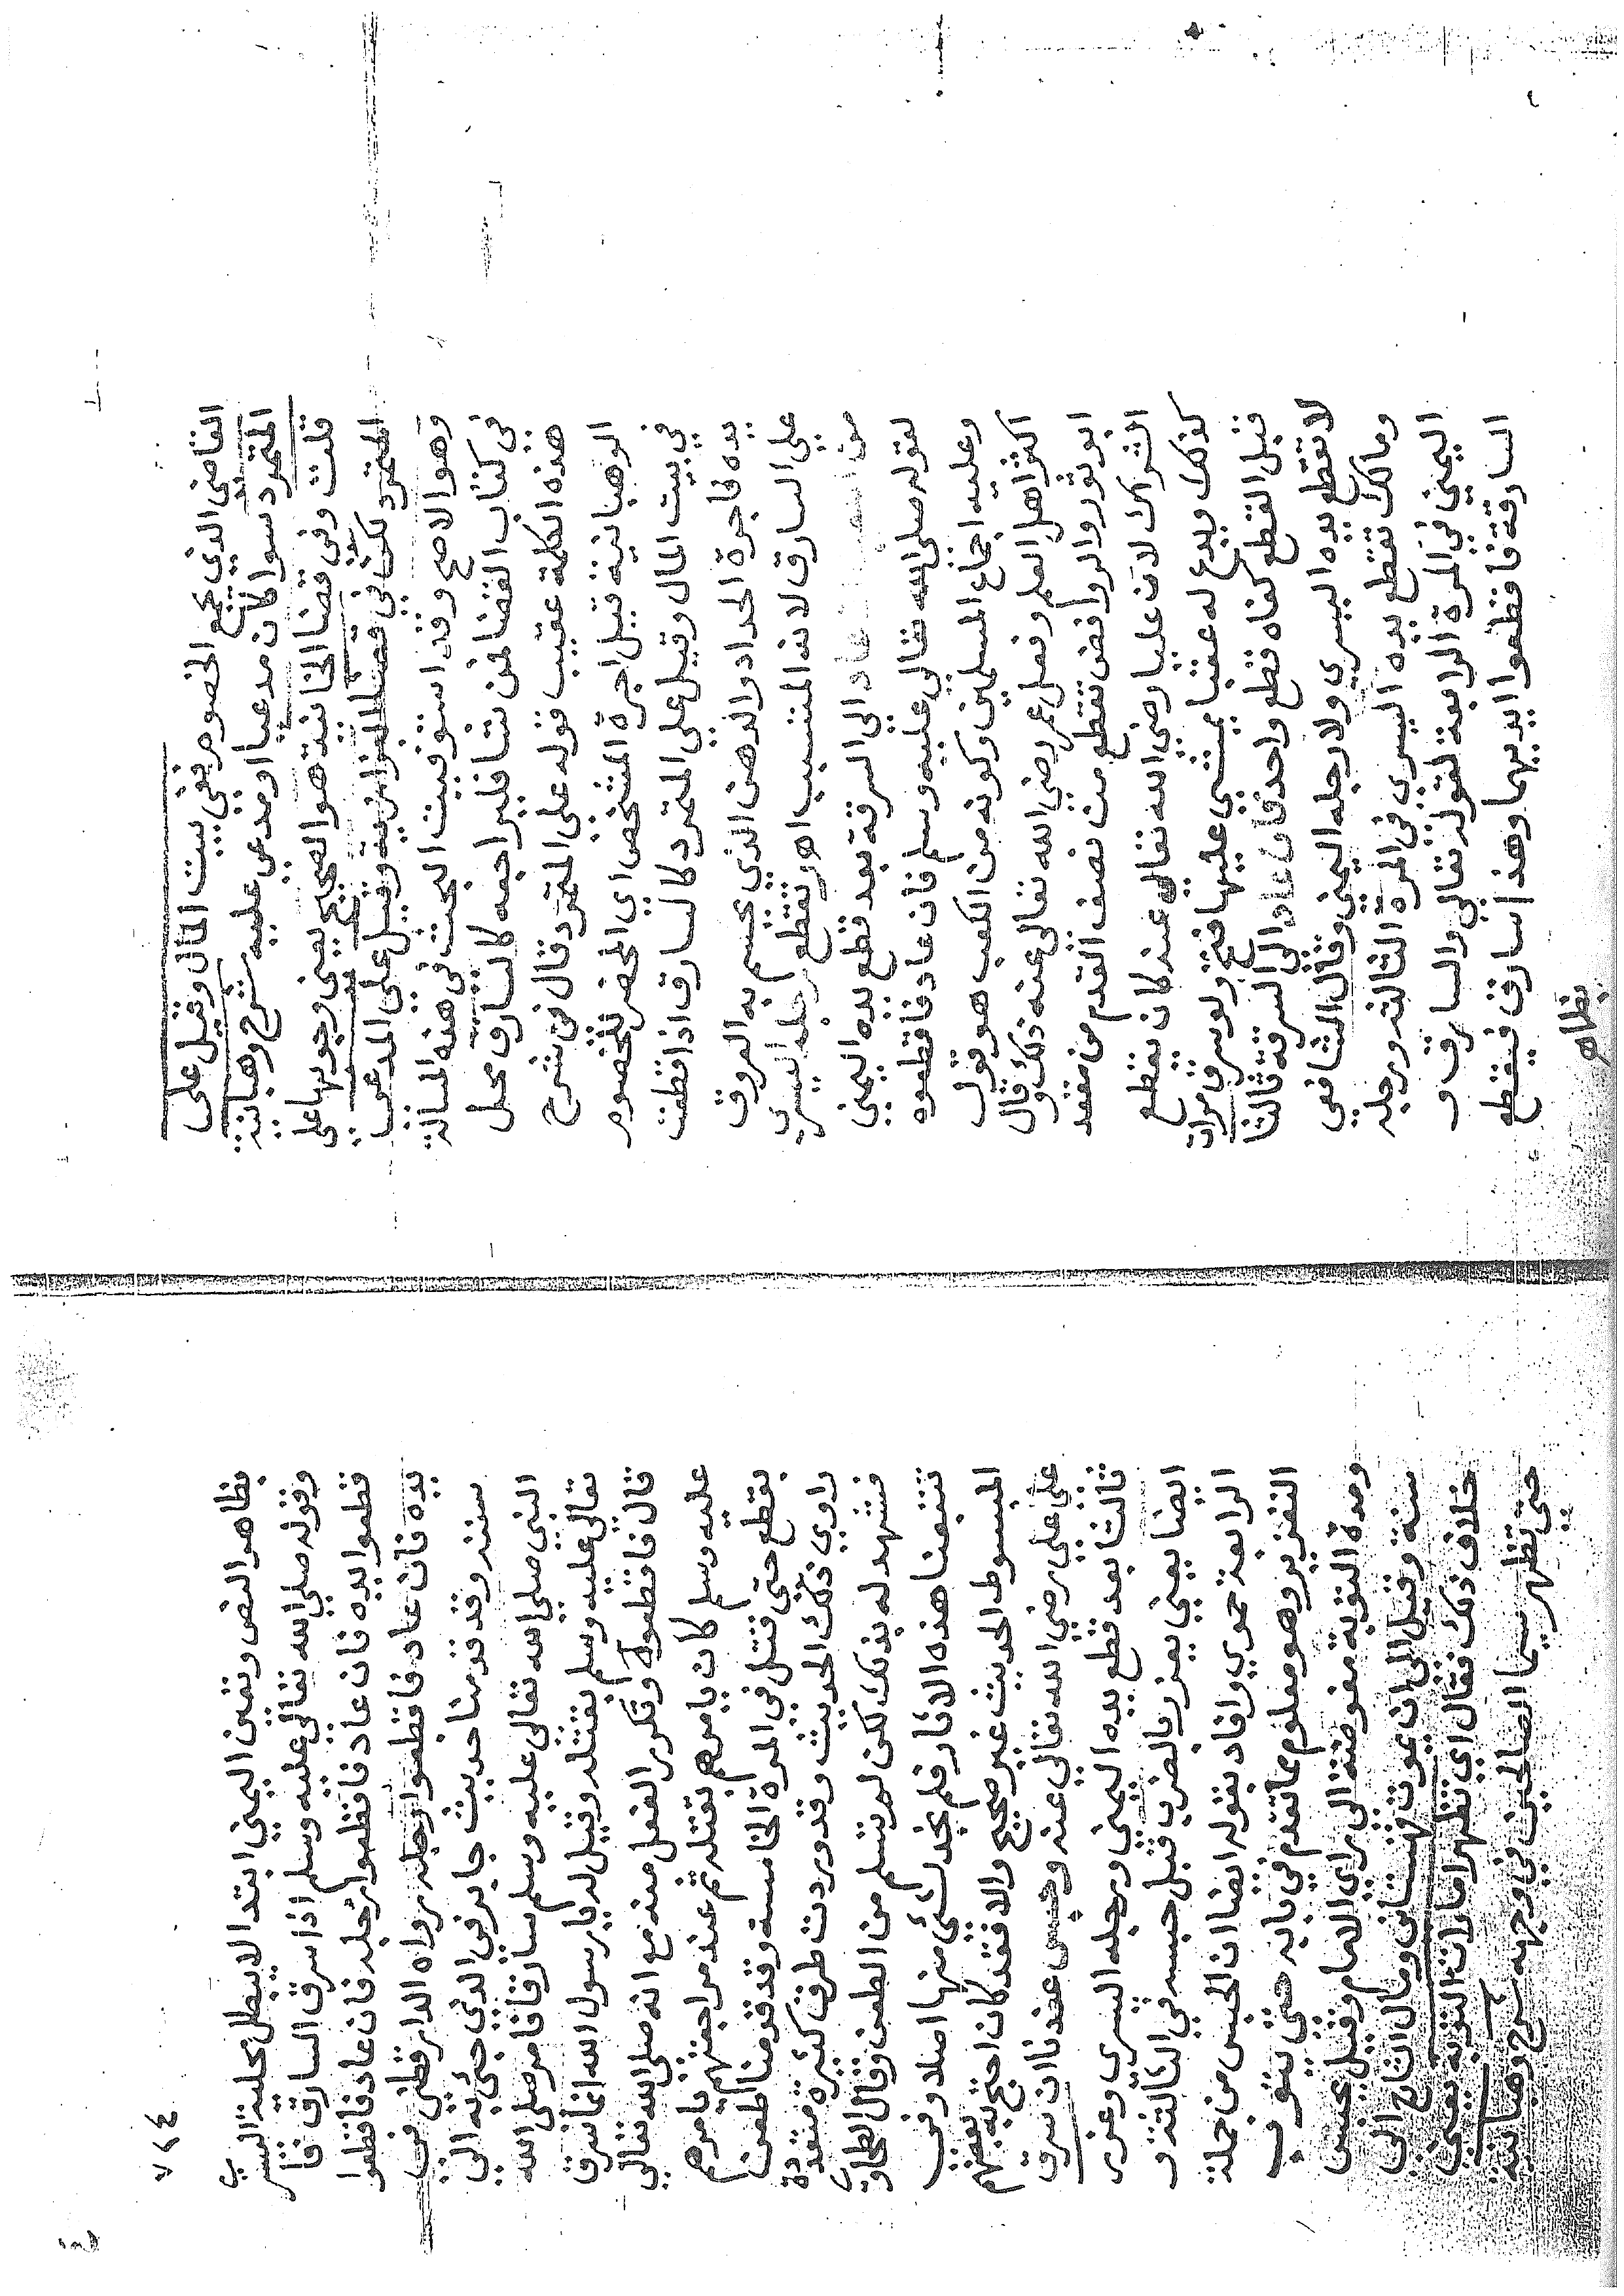 القاضي الذي يجمع الخصوم ففي بيت المال وقيل على
المتمرد سوا كان مدعيا او مدعى عليه شرح وهبانية
قلت وفي قضا الخانية هو الصحيح يعني وجوبها على
المتمرد لكن في قضا البزازية وقيل على المدعي
وهو الاصح وقد استوفيت البحث في هذه المسالة
في كتاب القضا لمن شا فليراجعه كالسارق محل
هذه الكلمة عقيب قوله على المتمرد قال في شرح
الوهبانية قيل اجرة المشخص اي المحضر للخصوم
في بيت المال وقيل على المتمرد كالسارق اذا قطعت
يده فاجرة الحداد والدهن الذي يحسم به العروق
على السارق لانه المتسبب اهر تقطع رجله اليسرى
من عاد الى السرقة بعد قطع يده اليمنى
لقوله صلى الله تعالى عليه وسلم فان عاد فاقطعوه
وعليه اجماع المسلمين وكونه من الكعب هو قول
اكثر اهل العلم وفعل عمر رضي الله تعالى عنه ذلك وقال
ابو ثور والروافض تقطع من نصف القدم من مقعد
الشراك لان عليا رضي الله تعالى عنه كان يقطع
كذلك ويدع له عقبا يمشي عليها فتح ولو سرق مرات
قبل القطع كفاه قطع واحد فان عاد الى السرقة ثالثا
لا تقطع يده اليسرى ولا رجله اليمنى وقال الشافعي
ومالك تقطع يده اليسرى في المرة الثالثة ورجله
اليمنى في المرة الرابعة لقوله تعالى والسارق و
السارقة فاقطعوا ايديهما وهذا سارق فيقطع
بظاهر
٧٢٤
بظاهر النص وتعين اليمنى ابتدا لا يبطل محلية اليسرى
وقوله صلى الله تعالى عليه وسلم اذا سرق السارق فا
قطعوا يده فان عاد فاقطعوا رجله فان عاد فاقطعوا
يده فان عاد فاقطعوا رجله رواه الدارقطني في
سننه وقد قدمنا حديث جابر في الذي جئ به الى
النبي صلى الله تعالى عليه وسلم سارقا فامر صلى الله
تعالى عليه وسلم بقتله وقيل له يا رسول الله انما سرق
قال فاقطعوه وتكرر الفعل منه مع انه صلى الله تعالى
عليه وسلم كان يامرهم بقتله ثم عند مراجعتهم يامرهم
بقطع حتى قتل في المرة الخامسة وقد قدمنا طعن
راوي ذلك الحديث وقد وردت طرق كثيرة متعددة
فشهد له بذلك لكن لم تسلم من الطعن وقال الطحاوي
تتبعنا هذه الاثار فلم نجد لشئ منها اصلا وفي
المبسوط الحديث غير صحيح والا فقد كان احتج به بعضهم
على علي رضي الله تعالى عنه وحبس عندنا ان سرق
ثالثا بعد قطع يده اليمنى ورجله اليسرى وعزر
ايضا يعني يعزر بالضرب قبل حبسه في الثالثة و
الرابعة حموي وافاد بقوله ايضا ان الحبس من جملة
التعزير وهو معلوم مما تقدم في بابه حتى يتوب
ومدة التوبة مفوضة الى راي الامام وقيل يحبس
سنة وقيل الى ان يموت قهستاني ومال الشارح الى
خلاف ذلك فقال اي تظهر امارات التوبة يعني
حتى تظهر سيما الصالحين في وجهه شرح وهبانية